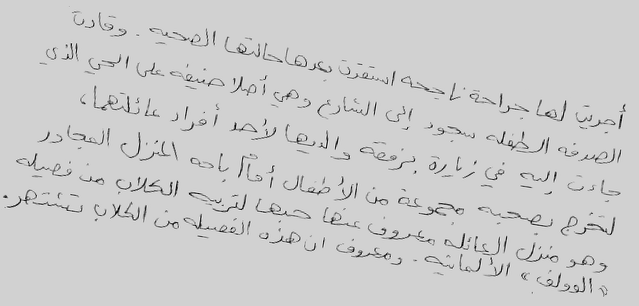 أجريت لها جراحة ناجحه استقرت بعدها حالتها الصحيه. وقادت
الصدفه الطفله سجود إلى الشارع وهي أصلا ضيفه على الحي الذي
جاءت إليه في زيارة برفقة والديها لأحد أفراد عائلتهما،
لتخرج بصحبه مجموعة من الأطفال أمام باحه المنزل المجاور
وهو منزل العائله معروف عنها حبها لتربيه الكلاب من فصيله
«الوولف» الألمانيه. ومعروف ان هذه الفصيله من الكلاب تشتهر.